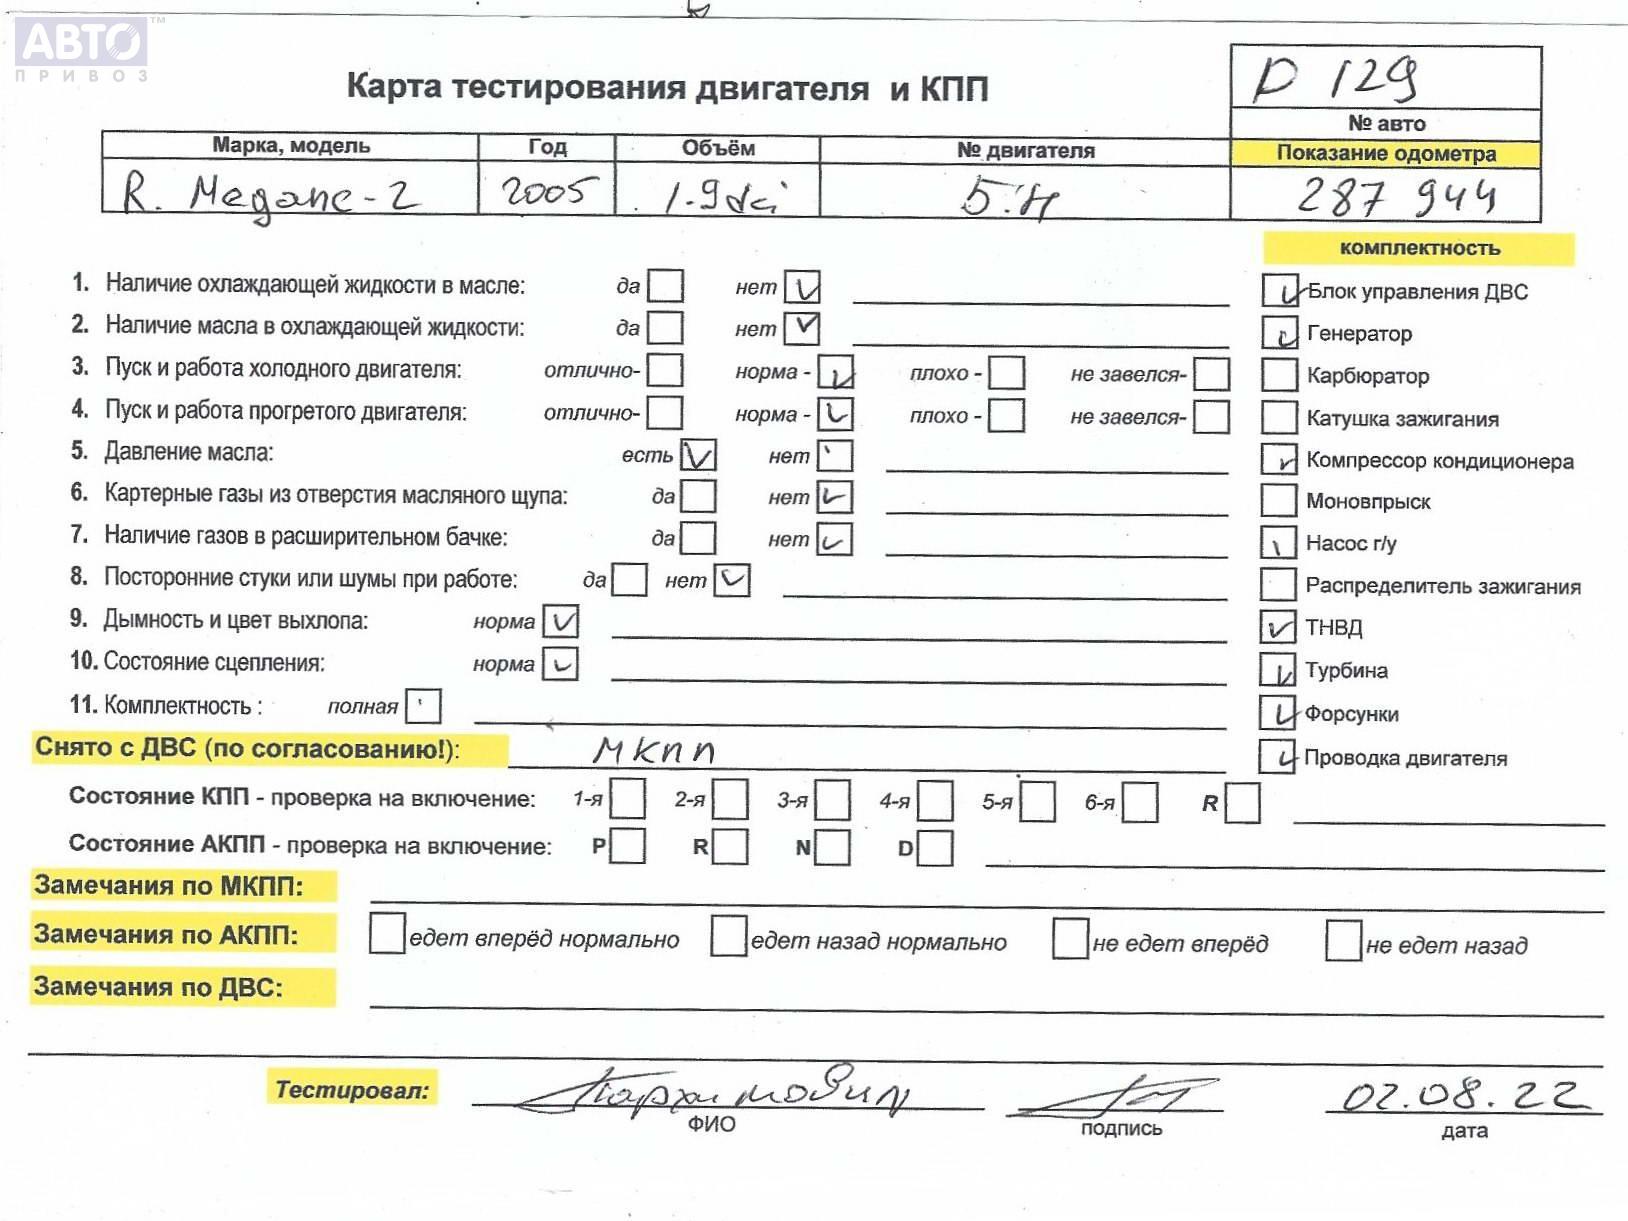 АВТО™
ПРИВОЗ
D 129
Карта тестирования двигателя и КПП
№ авто
Марка, модель Год Объём № двигателя Показание одометра
R. Megane-2 2005 1.9dci Б.Н 287 944
комплектность
1. Наличие охлаждающей жидкости в масле: да нет Блок управления ДВС
2. Наличие масла в охлаждающей жидкости: да нет Генератор
3. Пуск и работа холодного двигателя: отлично- норма - плохо - не завелся- Карбюратор
4. Пуск и работа прогретого двигателя: отлично- норма - плохо - не завелся- Катушка зажигания
5. Давление масла: есть нет Компрессор кондиционера
6. Картерные газы из отверстия масляного щупа: да нет Моновпрыск
7. Наличие газов в расширительном бачке: да нет Насос г/у
8. Посторонние стуки или шумы при работе: да нет Распределитель зажигания
9. Дымность и цвет выхлопа: норма ТНВД
10. Состояние сцепления: норма Турбина
11. Комплектность : полная Форсунки
Снято с ДВС (по согласованию!): МКПП Проводка двигателя
Состояние КПП - проверка на включение: 1-я 2-я 3-я 4-я 5-я 6-я R
Состояние АКПП - проверка на включение: P R N D
Замечания по МКПП:
Замечания по АКПП: едет вперёд нормально едет назад нормально не едет вперёд не едет назад
Замечания по ДВС:
Тестировал: Пархимович 02.08.22
ФИО подпись дата